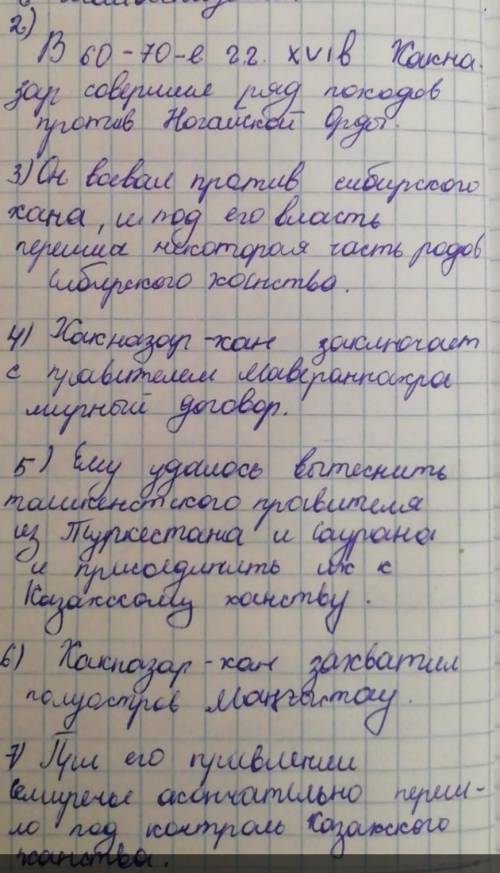 2)
В 60-70-е г.г. XVIв Хакна-
зар совершил ряд походов
против Ногайской Орды.
3) Он воевал против сибирского
хана, и под его власть
перешла некоторая часть родов
Сибирского ханства.
4) Хакназар-хан заключает
с правителем Мавераннахра
мирный договор.
5) Ему удалось вытеснить
ташкентского правителя
из Туркестана и Саурана
и присоединить их к
Казахскому ханству.
6) Хакназар-хан захватил
полуостров Маңғыстау.
7) При его правлении
Семиречье окончательно переш-
ло под контроль Казахского
ханства.